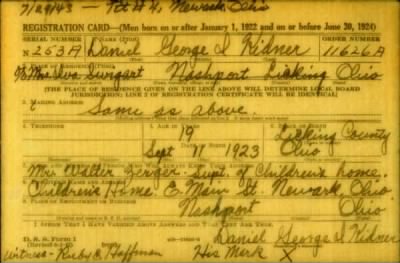 7/29/43 - Fbt # 4, Newark Ohio
REGISTRATION CARD—(Men born on or after January 1, 1922 and on or before June 30, 1924)
SERIAL NUMBER 1. NAME (Print) ORDER NUMBER
N 253A Daniel George I Kidner 11626A
2. PLACE OF RESIDENCE (Print)
% Mrs Iva Swigart Nashport Licking Ohio
[THE PLACE OF RESIDENCE GIVEN ON THE LINE ABOVE WILL DETERMINE LOCAL BOARD
JURISDICTION; LINE 2 OF REGISTRATION CERTIFICATE WILL BE IDENTICAL]
3. MAILING ADDRESS
Same as above.
4. TELEPHONE 5. AGE IN YEARS 6. PLACE OF BIRTH
19 Licking County
DATE OF BIRTH
Sept 11 1923 Ohio
7. NAME AND ADDRESS OF PERSON WHO WILL ALWAYS KNOW YOUR ADDRESS
Mrs. Walter Zerger - Supt. of Childrens home.
8. EMPLOYER'S NAME AND ADDRESS
Childrens Home E. Main St. Newark, Ohio
9. PLACE OF EMPLOYMENT OR BUSINESS
Nashport Ohio
I AFFIRM THAT I HAVE VERIFIED ABOVE ANSWERS AND THAT THEY ARE TRUE.
D. S. S. Form 1 Daniel George I Kidner
witness - Ruby C. Hoffman His Mark X